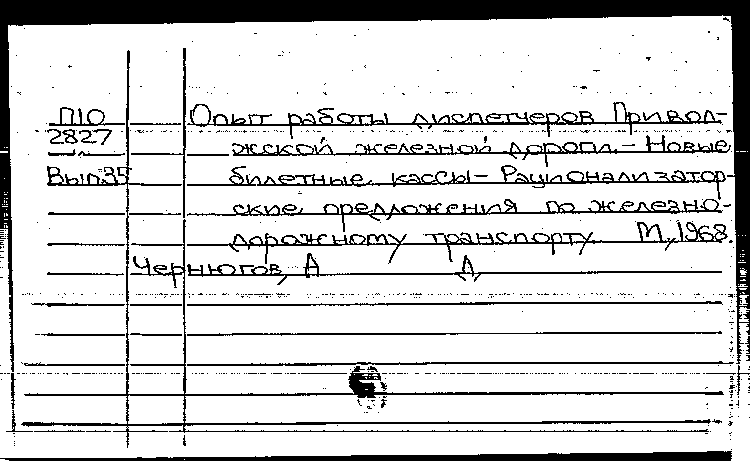 П10 Опыт работы диспетчеров Привол-
2827
жской железной дороги. - Новые
Вып.35 билетные кассы - Рационализатор-
ские предложения по железно-
дорожному транспорту. М., 1968.
Чернюгов, А Д